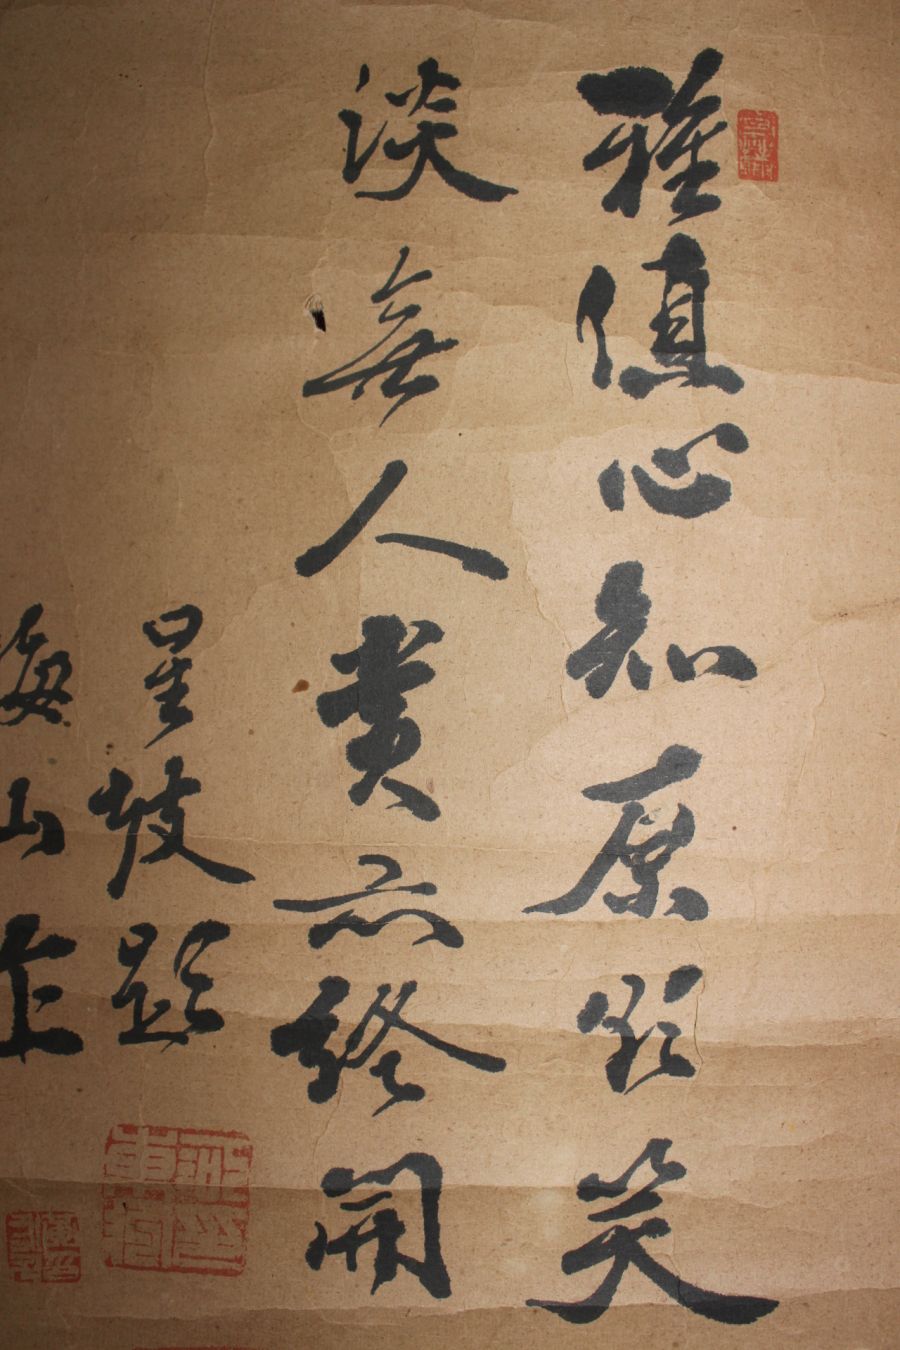 雅值心知原顧笑
淡無人貴亦終開
星坡題
山作